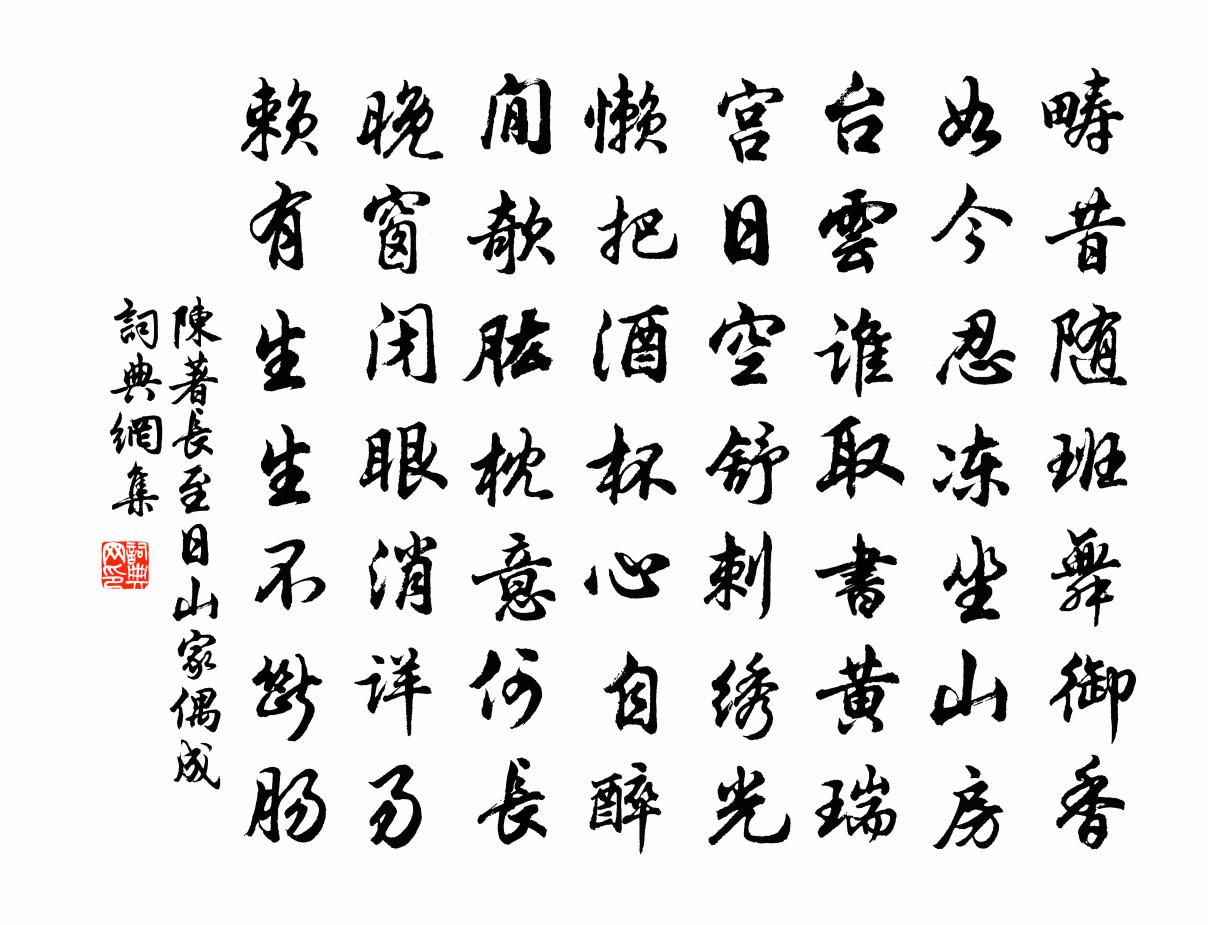 疇昔随班舞御香
如今忍冻坐山房
台雲谁取書黄瑞
宫日空舒刺绣光
懒把酒杯心自醉
閒欹肱枕意何長
晚窗闭眼消详易
赖有生生不斷肠
陳著長至日山家偶成
詞典網集
詞典网印